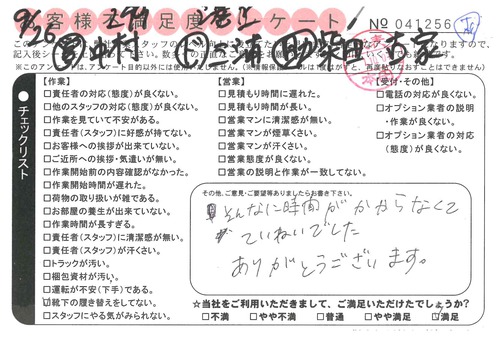 お客様満足度アンケート
№ 041256
9/26
出村
柴田
古家
【作業】
□責任者の対応(態度)が良くない。
□他のスタッフの対応(態度)が良くない。
□作業を見ていて不安がある。
□責任者(スタッフ)に好感が持てない。
□お客様への挨拶が出来ていない。
□ご近所への挨拶・気遣いが無い。
□作業開始前の内容確認がなかった。
□作業開始時間が遅れた。
□荷物の取り扱いが雑である。
□お部屋の養生が出来ていない。
□作業時間が長すぎる。
□責任者(スタッフ)に清潔感が無い。
□責任者(スタッフ)が汗くさい。
□トラックが汚い。
□梱包資材が汚い。
□運転が不安(下手)である。
□靴下の履き替えをしてない。
□スタッフにやる気がみられない。
【営業】
□見積もり時間に遅れた。
□見積もり時間が長い。
□営業マンに清潔感が無い。
□営業マンが煙草くさい。
□営業マンが汗くさい。
□営業態度が良くない。
□営業の説明と作業が一致してない。
【受付・その他】
□電話の対応が良くない。
□オプション業者の説明
・作業が良くない。
□オプション業者の対応
(態度)が良くない。
チェックリスト
その他、ご意見・ご要望等ありましたらお書き下さい。
そんなに時間がかからなくて
ていねいでした
ありがとうございます。
☆当社をご利用いただきまして、ご満足いただけたでしょうか?
□不満 □やや不満 □普通 □やや満足 □満足